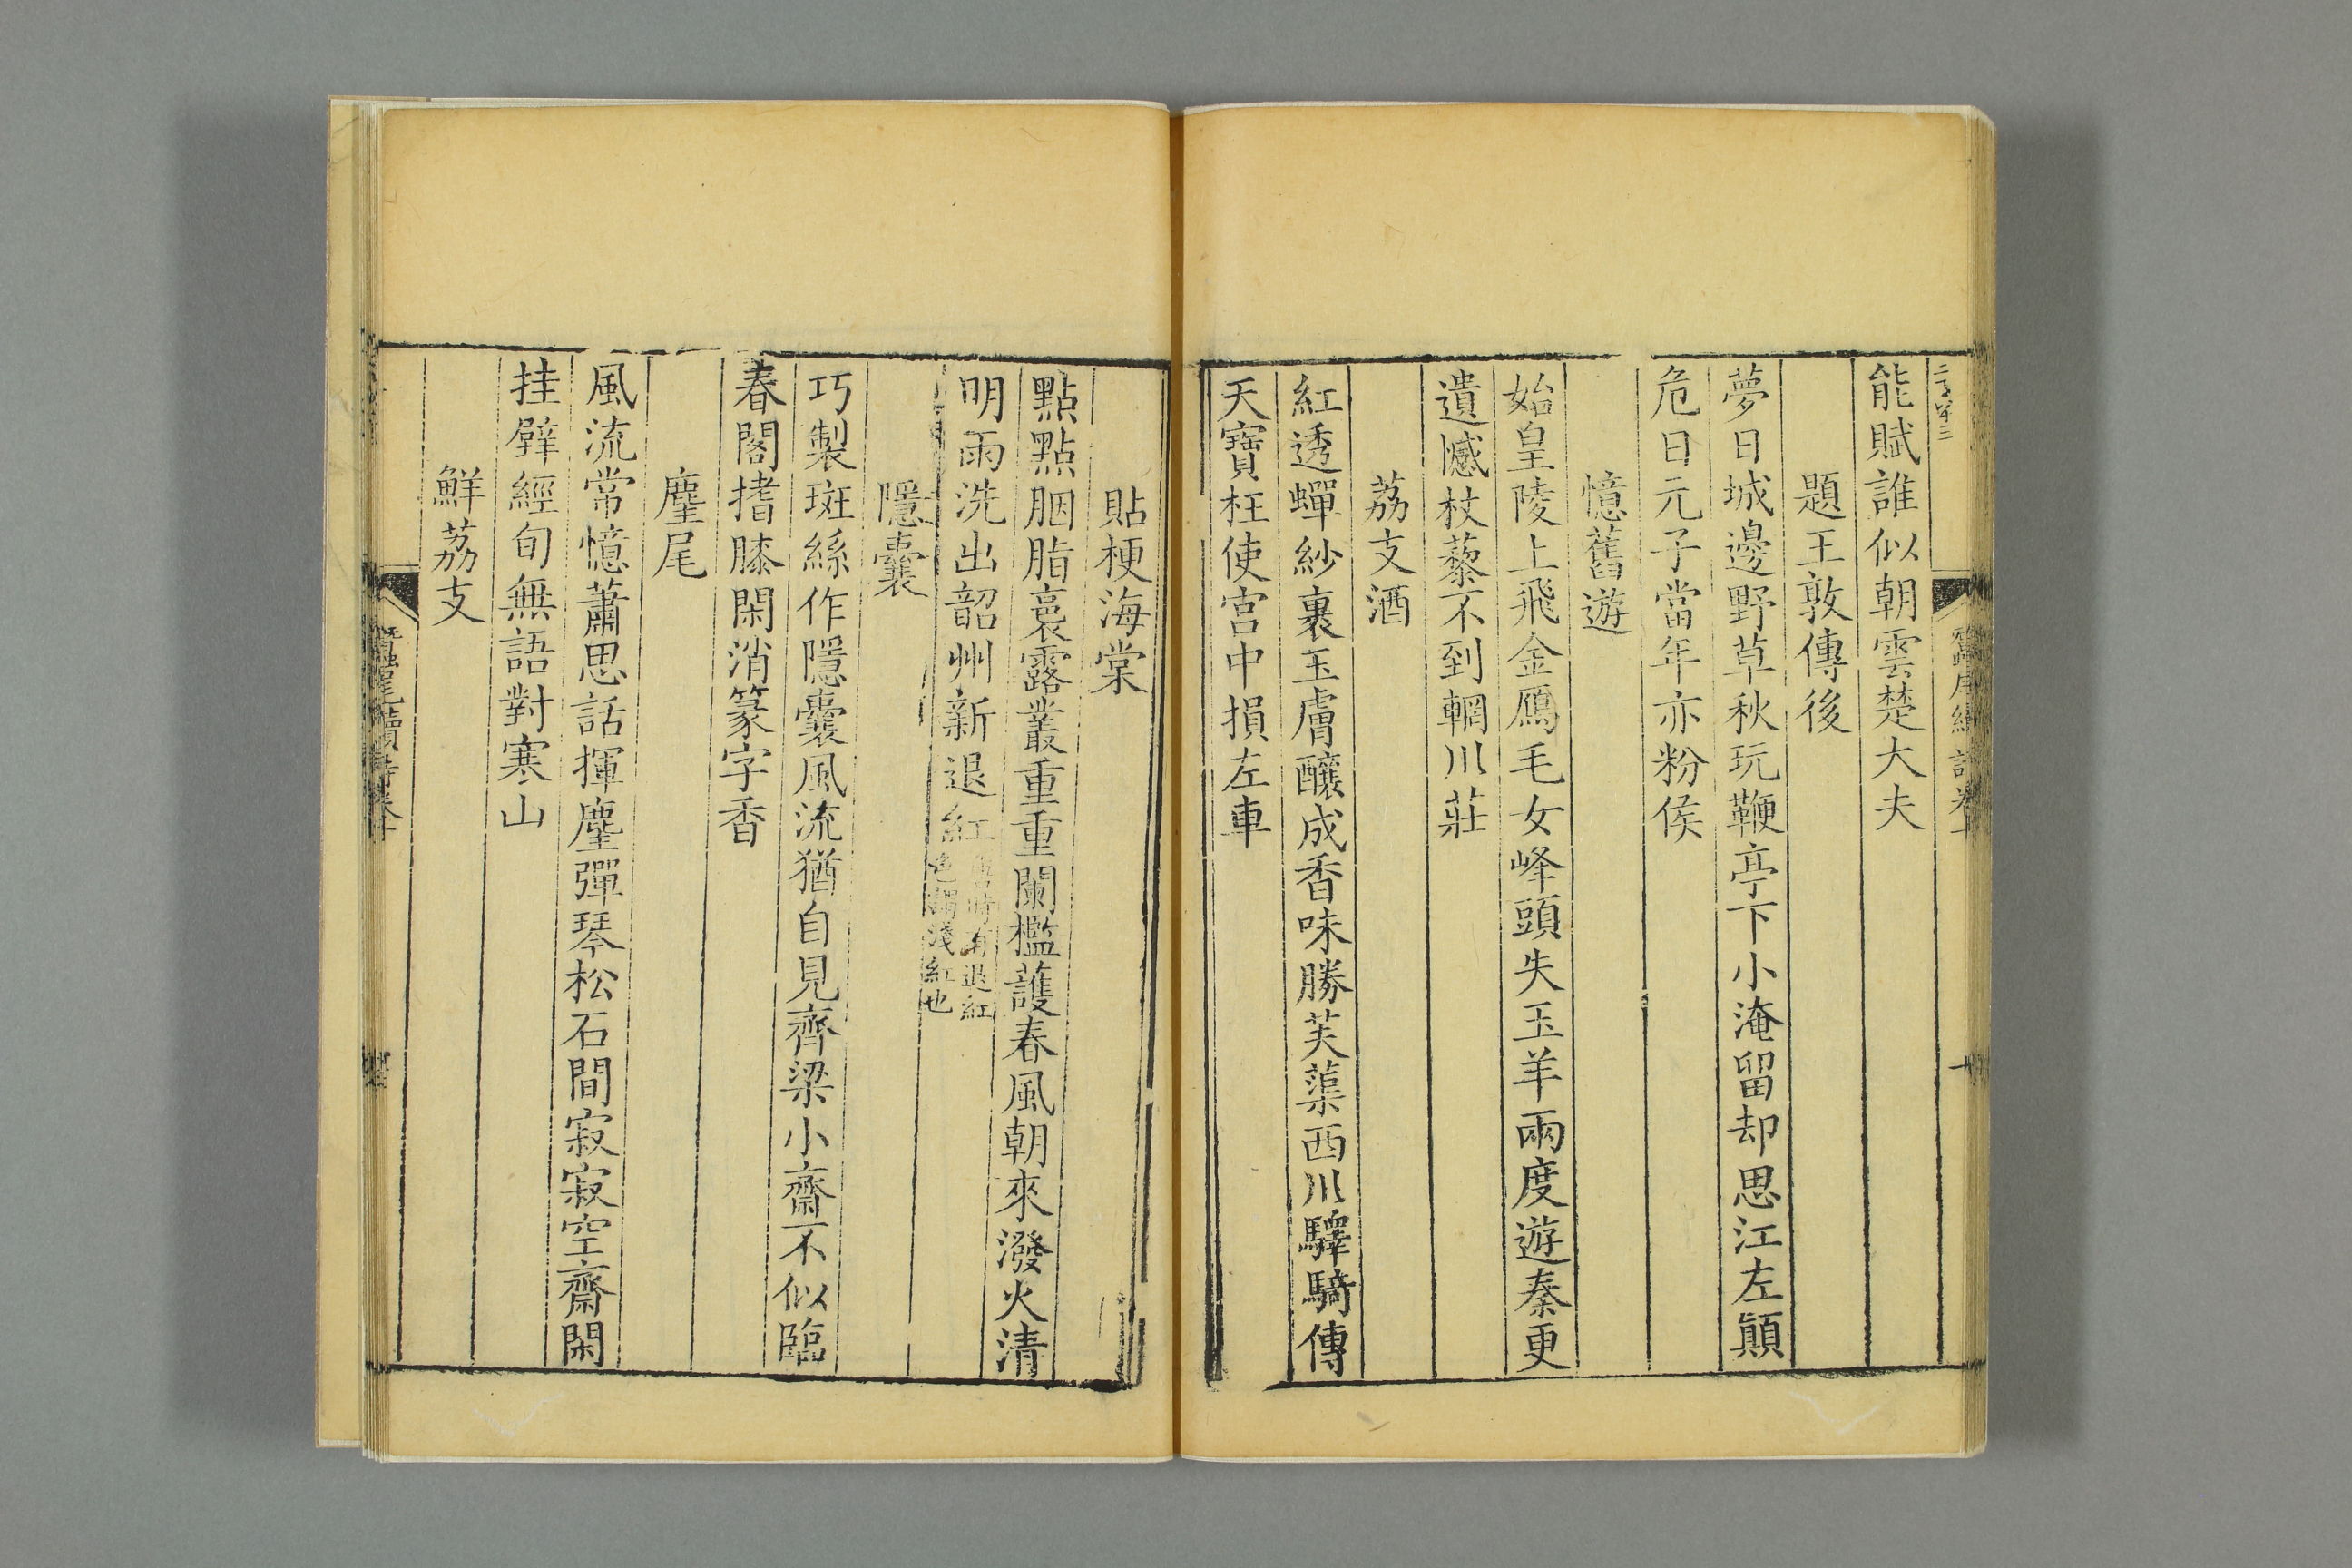 能賦誰似朝雲楚大夫
題王敦傳後
夢日城邊野草秋玩鞭亭下小淹留却思江左顛
危日元子當年亦粉侯
憶舊遊
始皇陵上飛金鴈毛女峰頭失玉羊兩度遊秦更
遺憾杖藜不到輞川莊
荔支酒
紅透蟬紗裹玉膚釀成香味勝芙蕖西川驛騎傳
天寶枉使宮中損左車
貼梗海棠
點點胭脂裛露叢重重闌檻護春風朝來潑火清
明雨洗出韶州新退紅唐時有退紅
色謂淺紅也
隱囊
巧製斑絲作隱囊風流猶自見齊梁小齋不似臨
春閣搘膝閑消篆字香
麈尾
風流常憶蕭思話揮麈彈琴松石間寂寂空齋閑
挂壁經旬無語對寒山
鮮荔支
蠶尾續詩卷十